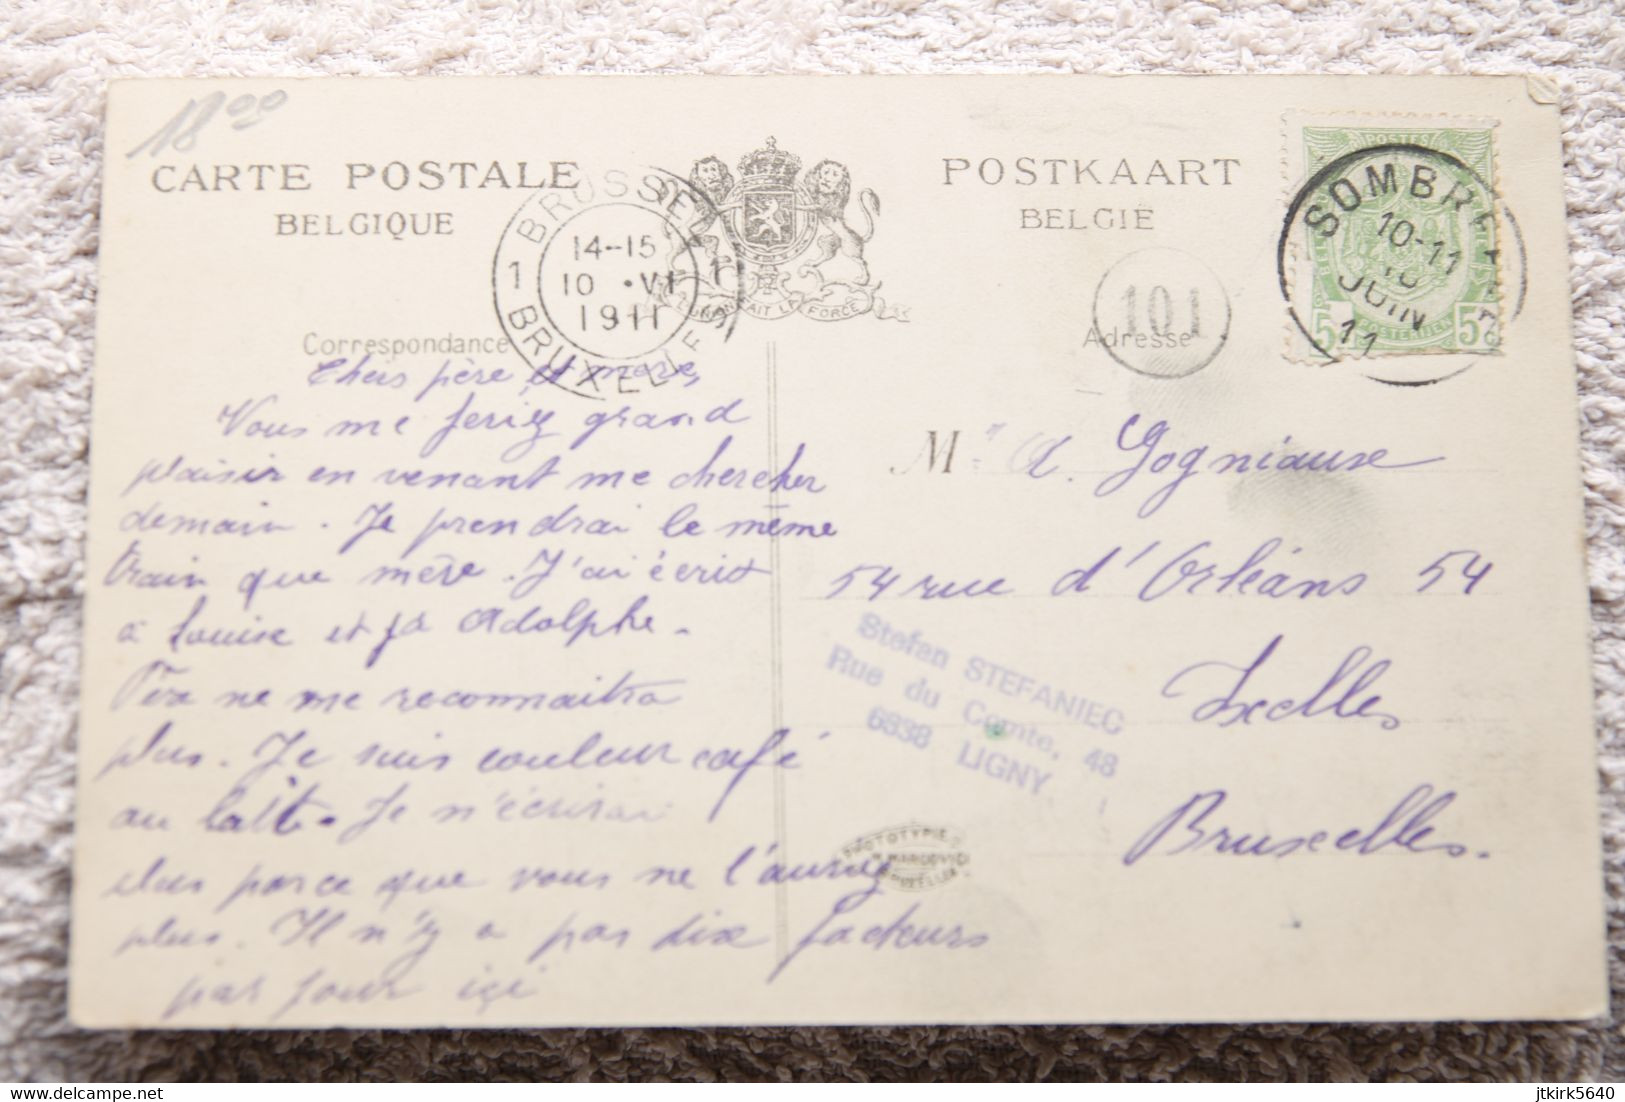 18⁰⁰
CARTE POSTALE
BELGIQUE
POSTKAART
BELGIE
BRUSSEL
1 14-15 1
10 ·VI
1911
BRUXELLES
L'UNION FAIT LA FORCE
POSTES
5 POSTERIJEN 5
SOMBREFFE
10-11
10
JUIN
11
101
Correspondance
Adresse
Chers père et mère,
Vous me feriez grand
plaisir en venant me chercher
demain. Je prendrai le même
train que mère. J'ai écrit
à Louise et à Adolphe.
ne me reconnaitra
plus. Je suis couleur café
au lait. Je n'écrirai
plus parce que vous ne l'auriez
plus. Il n'y a pas dix facteurs
par jour içi
M r A. Gogniaux
54 rue d'Orléans 54
Ixelles
Bruxelles.
Stefan STEFANIEC
Rue du Comte, 48
6338 LIGNY
PHOTOTYPIE
MARCOVICI
BRUXELLES
delcampe.net
jtkirk5640